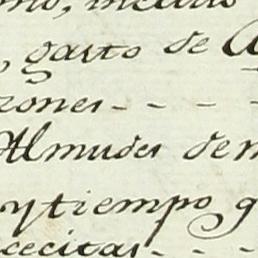 , gasto de A
zones - - - -
Almudes de m
y tiempo q
cecitas - - -